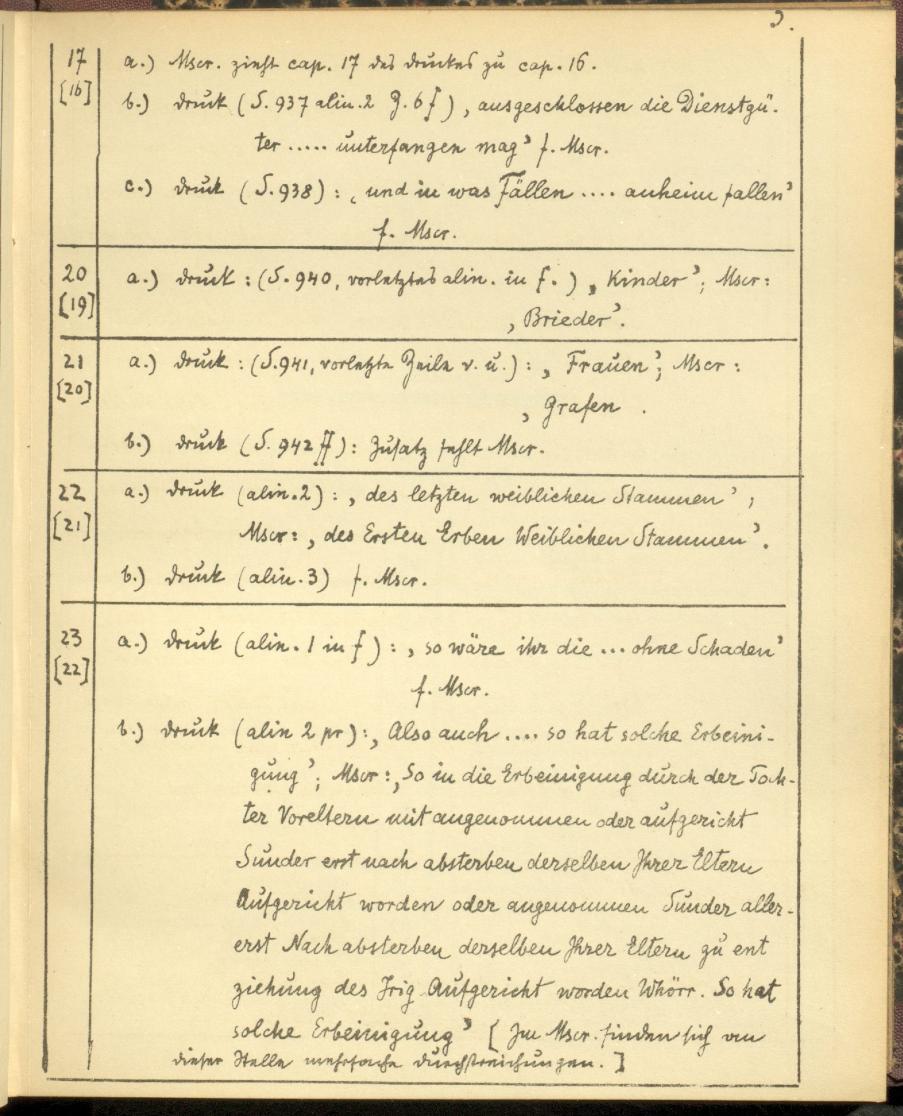 3.
17 a.) Mscr. zieht cap. 17 des druckes zu cap. 16.
[16]
b.) druck (S. 937 alin. 2 Z. 6 f), ‚ausgeschlossen die Dienstgü-
ter ..... unterfangen mag’ f. Mscr.
c.) druck (S. 938) : ‚und in was Fällen .... anheim fallen’
f. Mscr.
20 a.) druck : (S. 940, vorletztes alin. in f.) ‚Kinder’; Mscr :
[19] ‚Brieder’.
21 a.) druck : (S. 941, vorletzte Zeile v. u.) : ‚Frauen’; Mscr :
[20] ‚Grafen .
b.) druck (S. 942 ff) : Zusatz fehlt Mscr.
22 a.) druck (alin. 2) : ‚des letzten weiblichen Stammen’ ;
[21] Mscr : ‚des Ersten Erben Weiblichen Stammen’.
b.) druck (alin. 3) f. Mscr.
23 a.) druck (alin. 1 in f) : ‚so wäre ihr die ... ohne Schaden’
[22] f. Mscr.
b.) druck (alin 2 pr) : ‚Also auch .... so hat solche Erbeini-
gung’; Mscr : ‚So in die Erbeinigung durch der Toch-
ter Voreltern mit angenommen oder aufgericht
Sunder erst nach absterben derselben Ihrer Eltern
Aufgericht worden oder angenommen Sunder aller-
erst Nach absterben derselben Ihrer Eltern zu ent
ziehung des Irig Aufgericht worden Whörr. So hat
solche Erbeinigung’ [Im Mscr. finden sich an
dieser Stelle mehrfache durchstreichungen.]